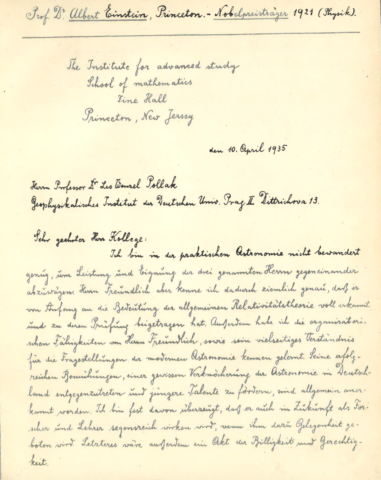 Prof. Dr. Albert Einstein, Princeton. - Nobelpreisträger 1921 (Physik).
The Institute for advanced study
School of mathematics
Fine Hall
Princeton, New Jerssy
den 10. April 1935
Herrn Professor Dr Leo Wenzel Pollak
Geophysikalisches Institut der Deutschen Univ. Prag II Dittrichova 13.
Sehr geehrter Herr Kollege:
Ich bin in der praktischen Astronomie nicht bewandert
genug, um Leistung und Eignung der drei genannten Herrn gegeneinander
abzuwägen. Herrn Freundlich aber kenne ich dadurch ziemlich genau, daß er
von Anfang an die Bedeutung der allgemeinen Relativitätstheorie voll erkannt
und zu deren Prüfung beigetragen hat. Außerdem habe ich die organisatori-
schen Fähigkeiten von Herrn Freundlich, sowie sein vielseitiges Verständnis
für die Fragestellungen der modernen Astronomie kennen gelernt. Seine erfolg-
reichen Bemühungen, einer gewissen Verknöcherung der Astronomie in Deutsch-
land entgegenzutreten und jüngere Talente zu fördern, sind allgemein aner-
kannt worden. Ich bin fest davon überzeugt, daß er auch in Zukunft als For-
scher und Lehrer segensreich wirken wird, wenn ihm dazu Gelegenheit ge-
boten wird. Letzteres wäre außerdem ein Akt der Billigkeit und Gerechtig-
keit.